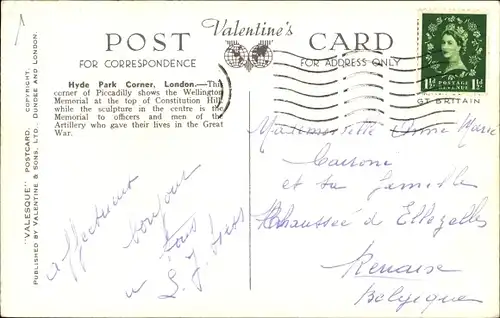 Valentine's
POST CARD
FOR CORRESPONDENCE
FOR ADDRESS ONLY
Hyde Park Corner, London.—This
corner of Piccadilly shows the Wellington
Memorial at the top of Constitution Hill
while the sculpture in the centre is the
Memorial to officers and men of the
Artillery who gave their lives in the Great
War.
"VALESQUE" POSTCARD. COPYRIGHT.
PUBLISHED BY VALENTINE & SONS, LTD., DUNDEE AND LONDON.
POSTAGE REVENUE
1½D 1½D
GT BRITAIN
affectueux
bonjour
à tous
Mademoiselle Anne Marie
et sa famille
Chaussée d'Ellezelles
Renaix
Belgique